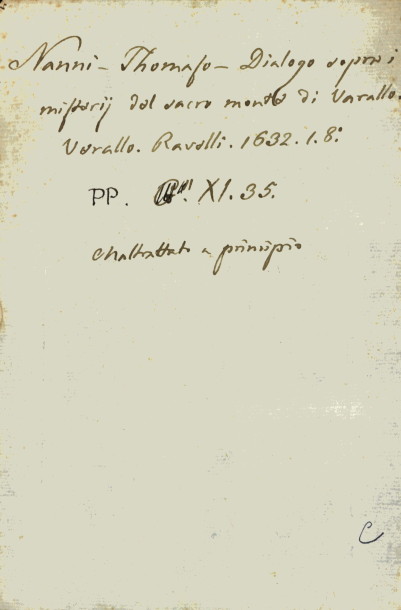 Nanni - Thomaso - Dialogo sopra i
misterij del sacro monte di Varallo.
Varallo. Ravelli. 1632. 1. 8:
PP. XI. 35.
Maltrattato a principio
C